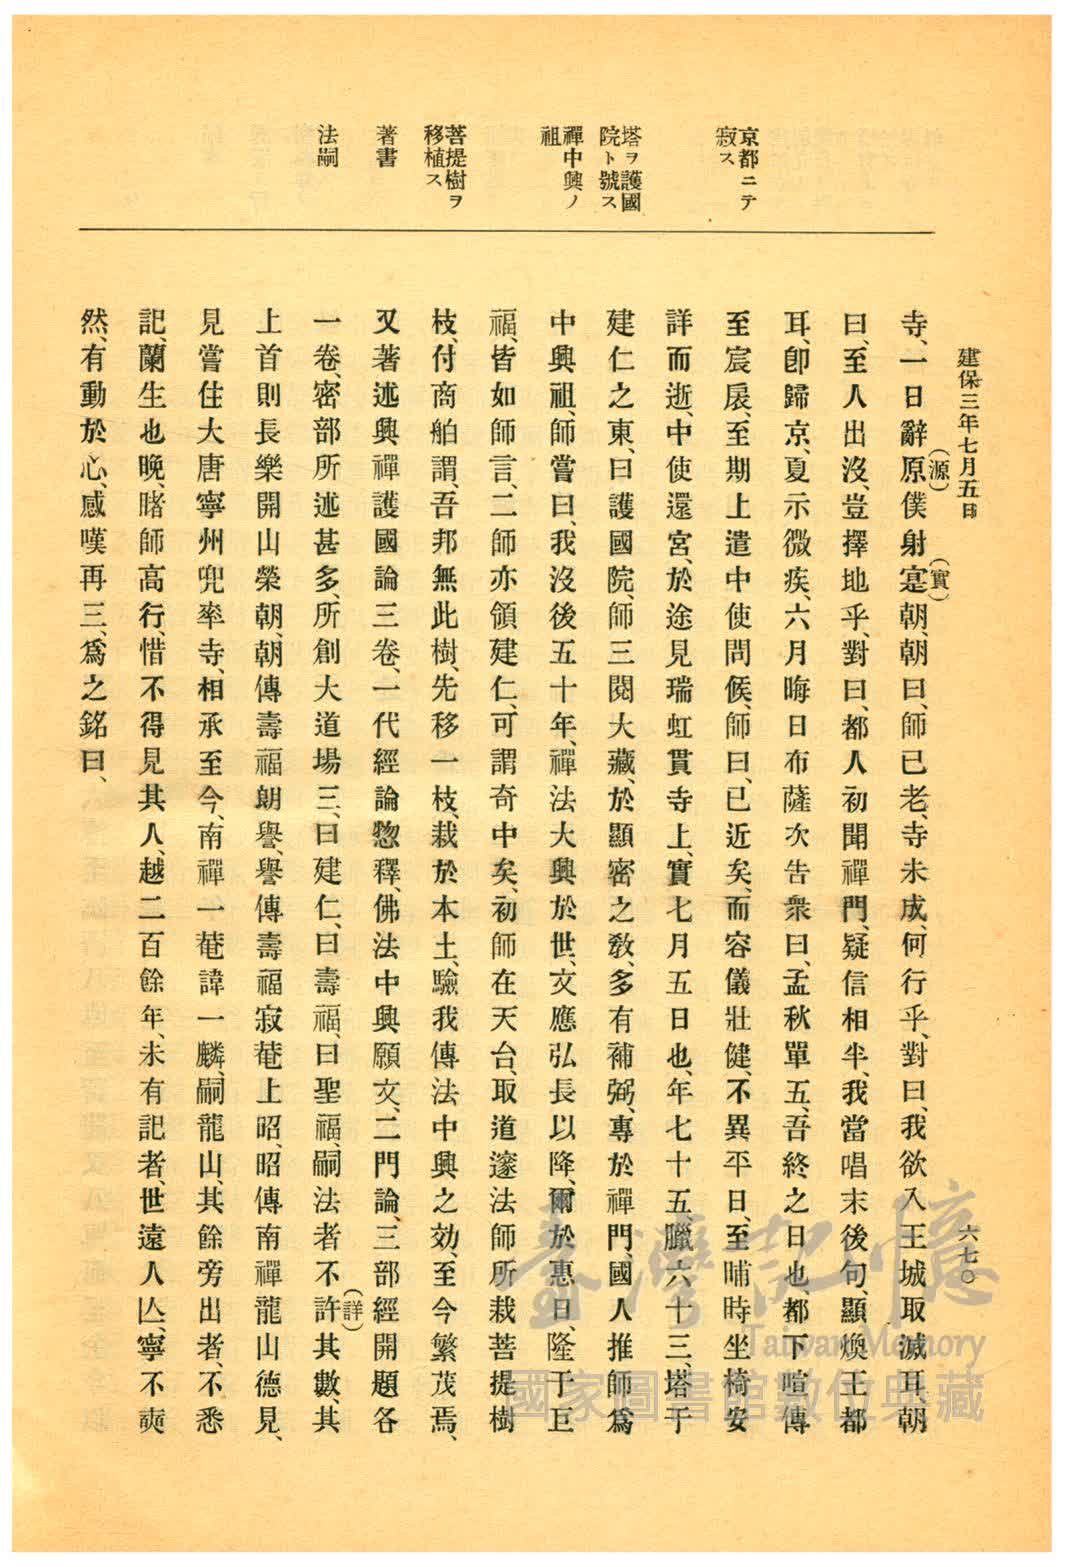 建保三年七月五日
六七〇
京都ニテ
寂ス
塔ヲ護國
院ト號ス
禪中興ノ
祖
菩提樹ヲ
移植ス
著書
法嗣
寺、一日辭原(源)僕射寔(實)朝、朝曰、師已老、寺未成、何行乎、對曰、我欲入王城取滅耳、朝
曰、至人出沒、豈擇地乎、對曰、都人初聞禪門、疑信相半、我當唱末後句、顯煥王都
耳、卽歸京、夏示微疾、六月晦日布薩次告衆曰、孟秋單五、吾終之日也、都下喧傳
至宸扆、至期上遣中使問候、師曰、已近矣、而容儀壯健、不異平日、至哺時坐椅安
詳而逝、中使還宮、於途見瑞虹貫寺上、實七月五日也、年七十五、臘六十三、塔于
建仁之東、曰護國院、師三閱大藏、於顯密之敎、多有補弼、專於禪門、國人推師爲
中興祖、師嘗曰、我沒後五十年、禪法大興於世、文應弘長以降、爾於惠日、隆于巨
福、皆如師言、二師亦領建仁、可謂奇中矣、初師在天台、取道邃法師所栽菩提樹
枝、付商舶謂、吾邦無此樹、先移一枝、栽於本土、驗我傳法中興之効、至今繁茂焉、
又著述興禪護國論三卷、一代經論惣釋、佛法中興願文、二門論、三部經開題各
一卷、密部所述甚多、所創大道場三、曰建仁、曰壽福、曰聖福、嗣法者不許(詳)其數、其
上首則長樂開山榮朝、朝傳壽福朗譽、譽傳壽福寂菴上昭、昭傳南禪龍山德見、
見嘗住大唐寧州兜率寺、相承至今、南禪一菴諱一麟、嗣龍山、其餘旁出者、不悉
記、蘭生也晚、睹師高行、惜不得見其人、越二百餘年、未有記者、世遠人亾、寧不奭
然、有動於心、感嘆再三、爲之銘曰、
臺灣記憶
Taiwan Memory
國家圖書館數位典藏